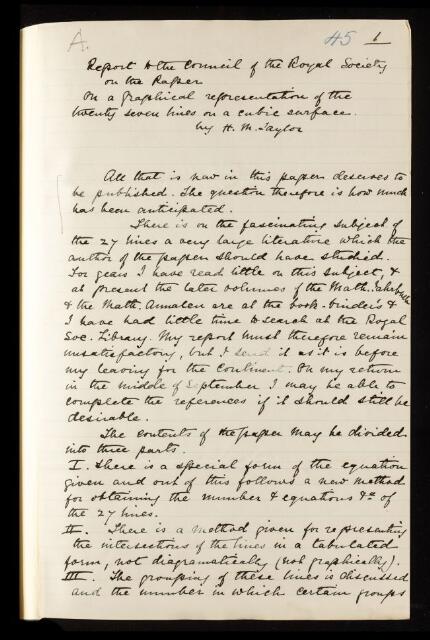 A.
45 1
Report to the Council of the Royal Society
on the Paper
On a graphical representation of the
twenty seven lines on a cubic surface.
by H. M. Taylor
All that is new in this paper deserves to
be published. The question therefore is how much
has been anticipated.
There is on the fascinating subject of
the 27 lines a very large literature which the
author of the paper should have studied.
For years I have read little on this subject, &
at present the later volumes of the Math. Jahrbuch
& the Math. Annalen are at the book-binders &
I have had little time to search at the Royal
Soc. Library. My report must therefore remain
unsatisfactory, but I send it as it is before
my leaving for the Continent. On my return
in the middle of September I may be able to
complete the references if it should still be
desirable.
The contents of the paper may be divided
into three parts.
I. There is a special form of the equation
given and out of this follows a new method
for obtaining the number & equations &c of
the 27 lines.
II. There is a method given for representing
the intersections of the lines in a tabulated
form, not diagrammatically (not graphically).
III. The grouping of these lines is discussed
and the number in which certain groups